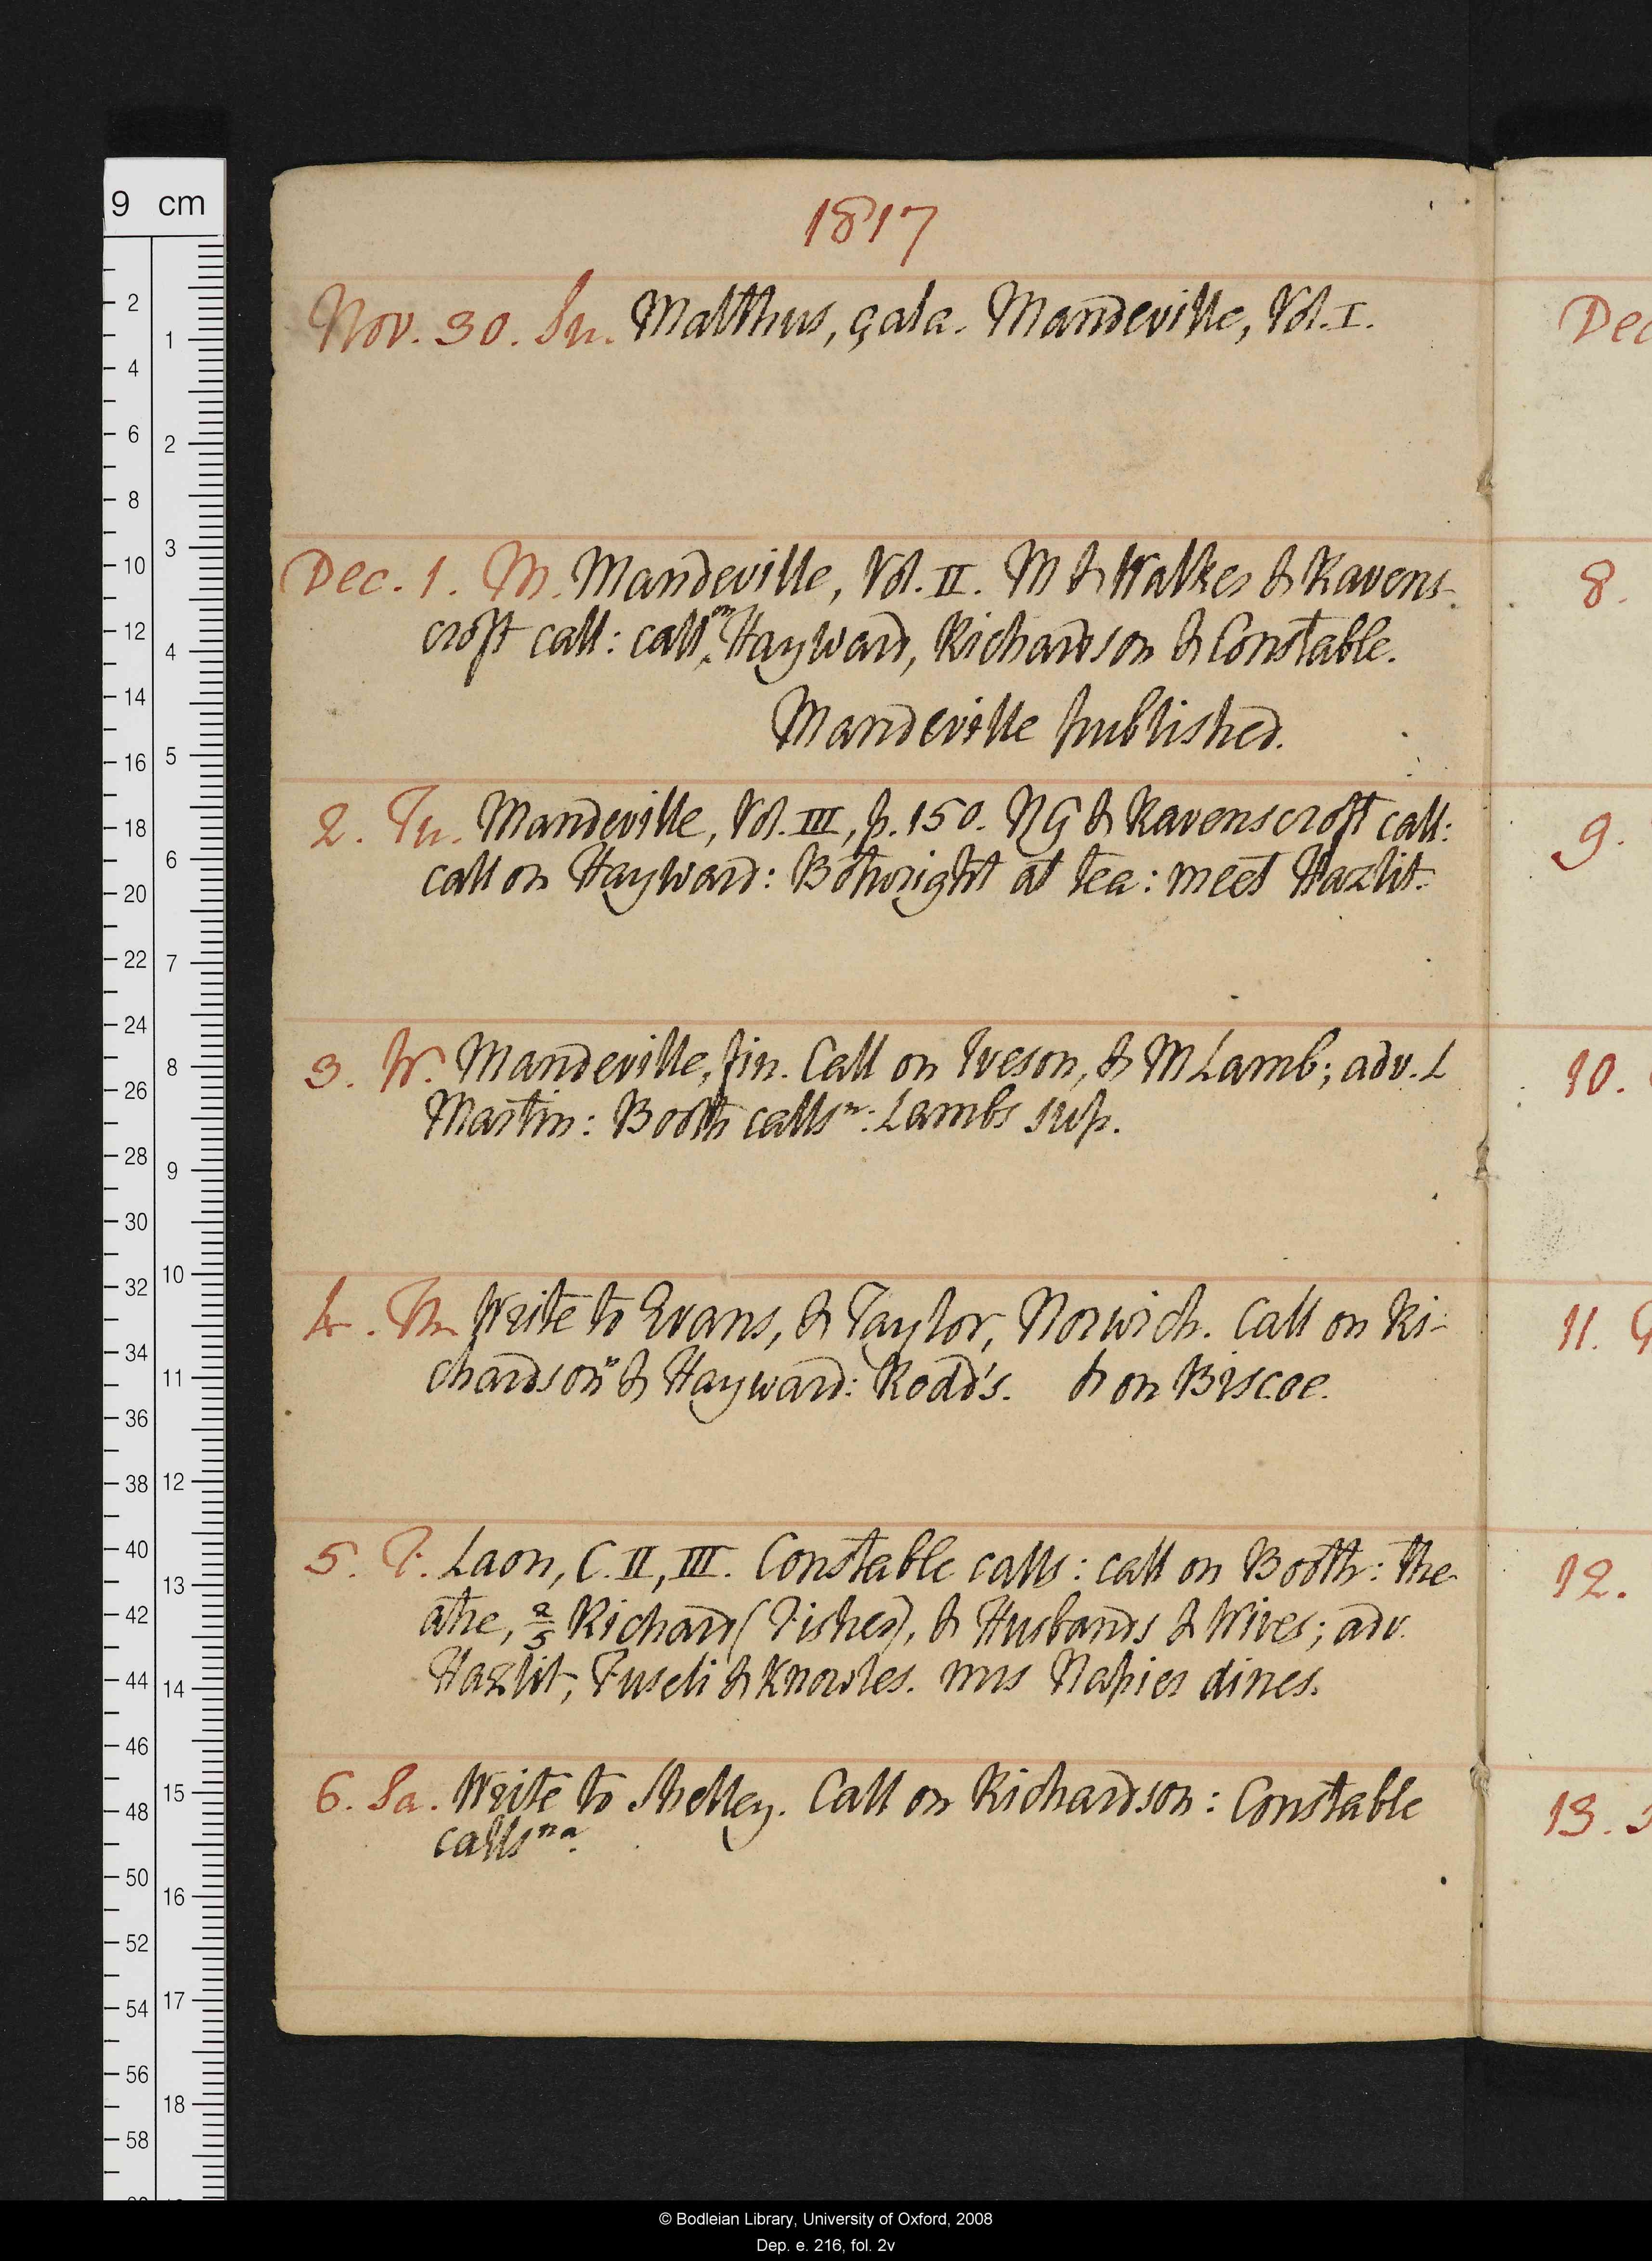 1817
Nov. 30. Su. Malthus, çala. Mandeville, Vol. I.
Dec. 1. M. Mandeville, Vol. II. M & Walker & Ravens-
croft call: call on Hayward, Richardson & Constable.
Mandeville published.
2. Tu. Mandeville, Vol. III, p. 150. NG & Ravenscroft call:
call on Hayward: Bothwright at tea: meet Hazlit.
3. W. Mandeville, fin. Call on Iveson, & M Lamb; adv. L
Martin: Booth calls n: Lambs sup.
4. Th. Write to Evans, & Taylor, Norwich. Call on Ri-
chardson n & Hayward: Rodd's. & on Biscoe.
5. F. Laon, C. II, III. Constable calls: call on Booth: the-
atre, 2/5 Richard (Fisher), & Husbands & Wives; adv.
Hazlit, Fuseli & Knowles. mrs Napier dines.
6. Sa. Write to Shelley. Call on Richardson: Constable
calls na.
Dec
8.
9.
10.
11. G
12.
13.
9 cm
2
4
6
8
10
12
14
16
18
20
22
24
26
28
30
32
34
36
38
40
42
44
46
48
50
52
54
56
58
1
2
3
4
5
6
7
8
9
10
11
12
13
14
15
16
17
18
© Bodleian Library, University of Oxford, 2008
Dep. e. 216, fol. 2v